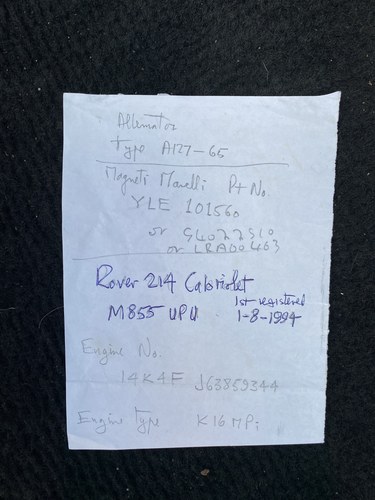 Alternator
type A127-65
Magneti Marelli Pt No.
YLE 101560
or GL022S10
or LRA00463
Rover 214 Cabriolet
1st registered
M855 UPU . 1-8-1994
Engine No.
14K4F J63859344
Engine Type K16 MPi